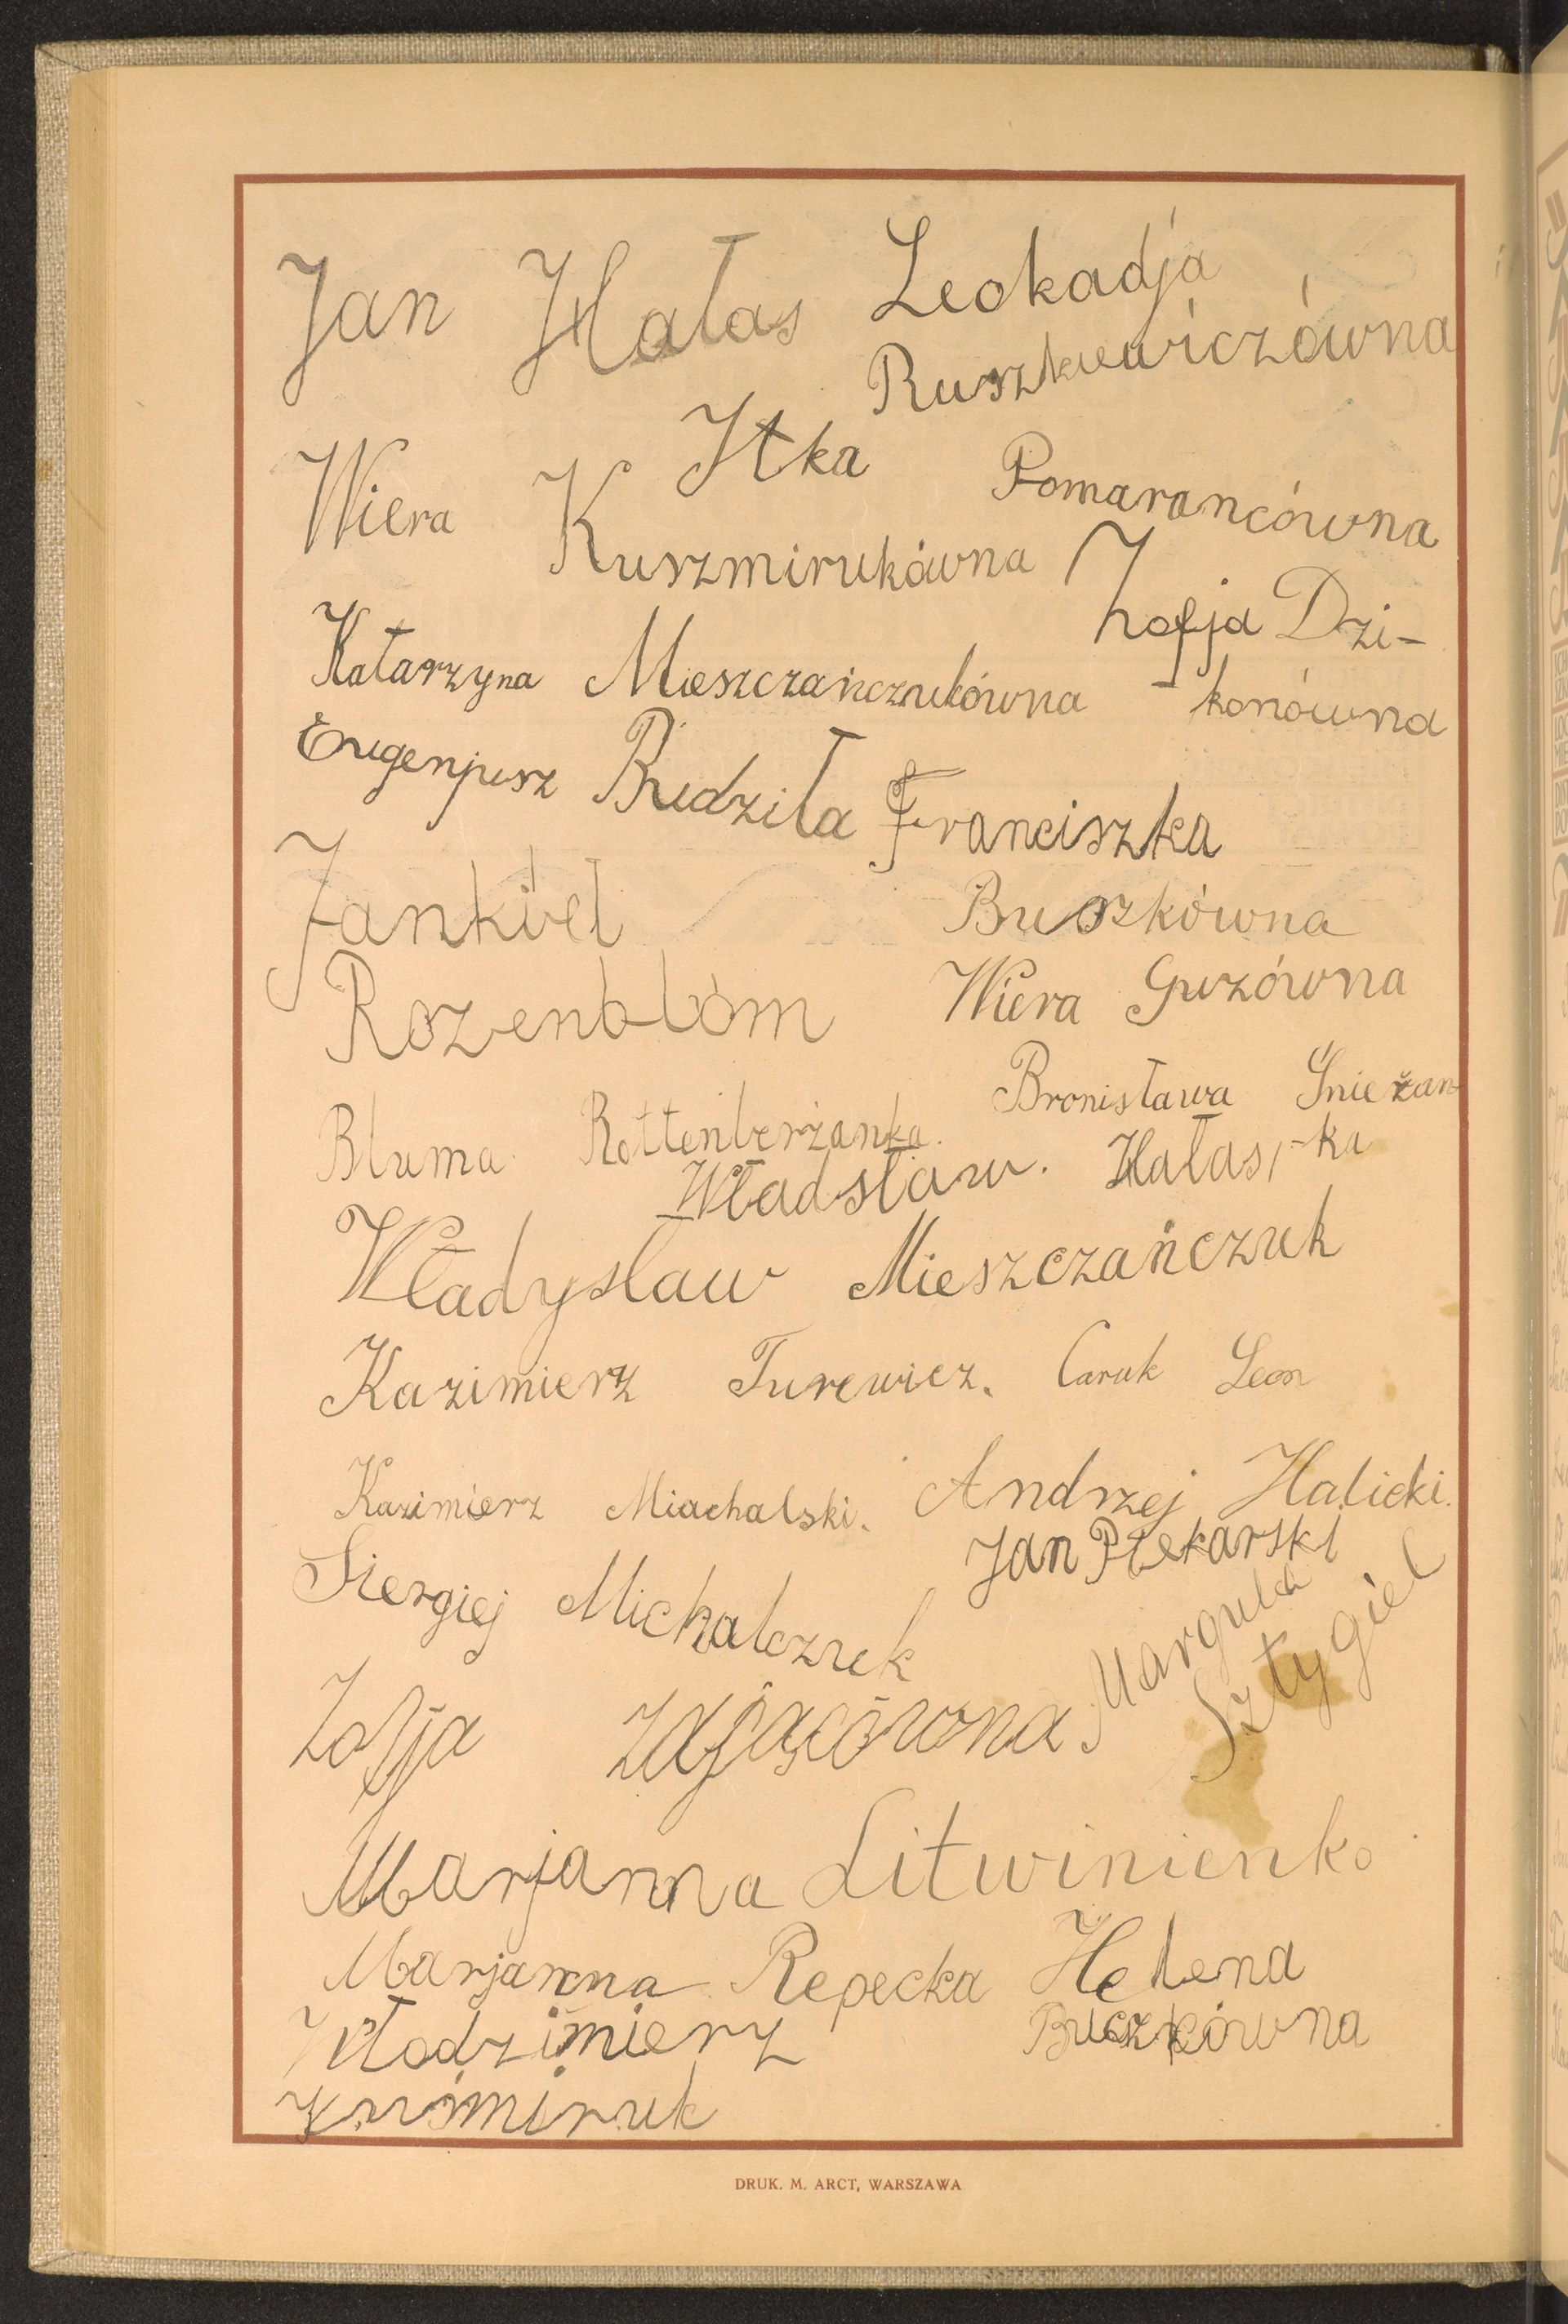 Jan Hałas Leokadja
Ruszkiewiczówna
Itka Pomarancówna
Wiera Kuszmirukówna
Zofja Dzi-
-konówna
Katarzyna Mieszczańczukówna
Eugenjusz Budziła
Franciszka
Buszkówna
Jankiel
Rozenblom
Wiera Guzówna
Bluma Rottenberżanka.
Bronisława Śnieżan-
-ka
Władsław. Hałas,
Władysław Mieszczańczuk
Kazimierz Turewicz. Caruk Leon
Kazimierz Miachalski. Andrzej Halicki.
Jan Piekarski
Siergiej Michalczuk
Margula
Sztygiel
Zofja Zającówna
Marjanna Litwinienko
Marjanna Repecka Helena
Buczkówna
Włodzimierz
Kuśmiruk
DRUK. M. ARCT, WARSZAWA